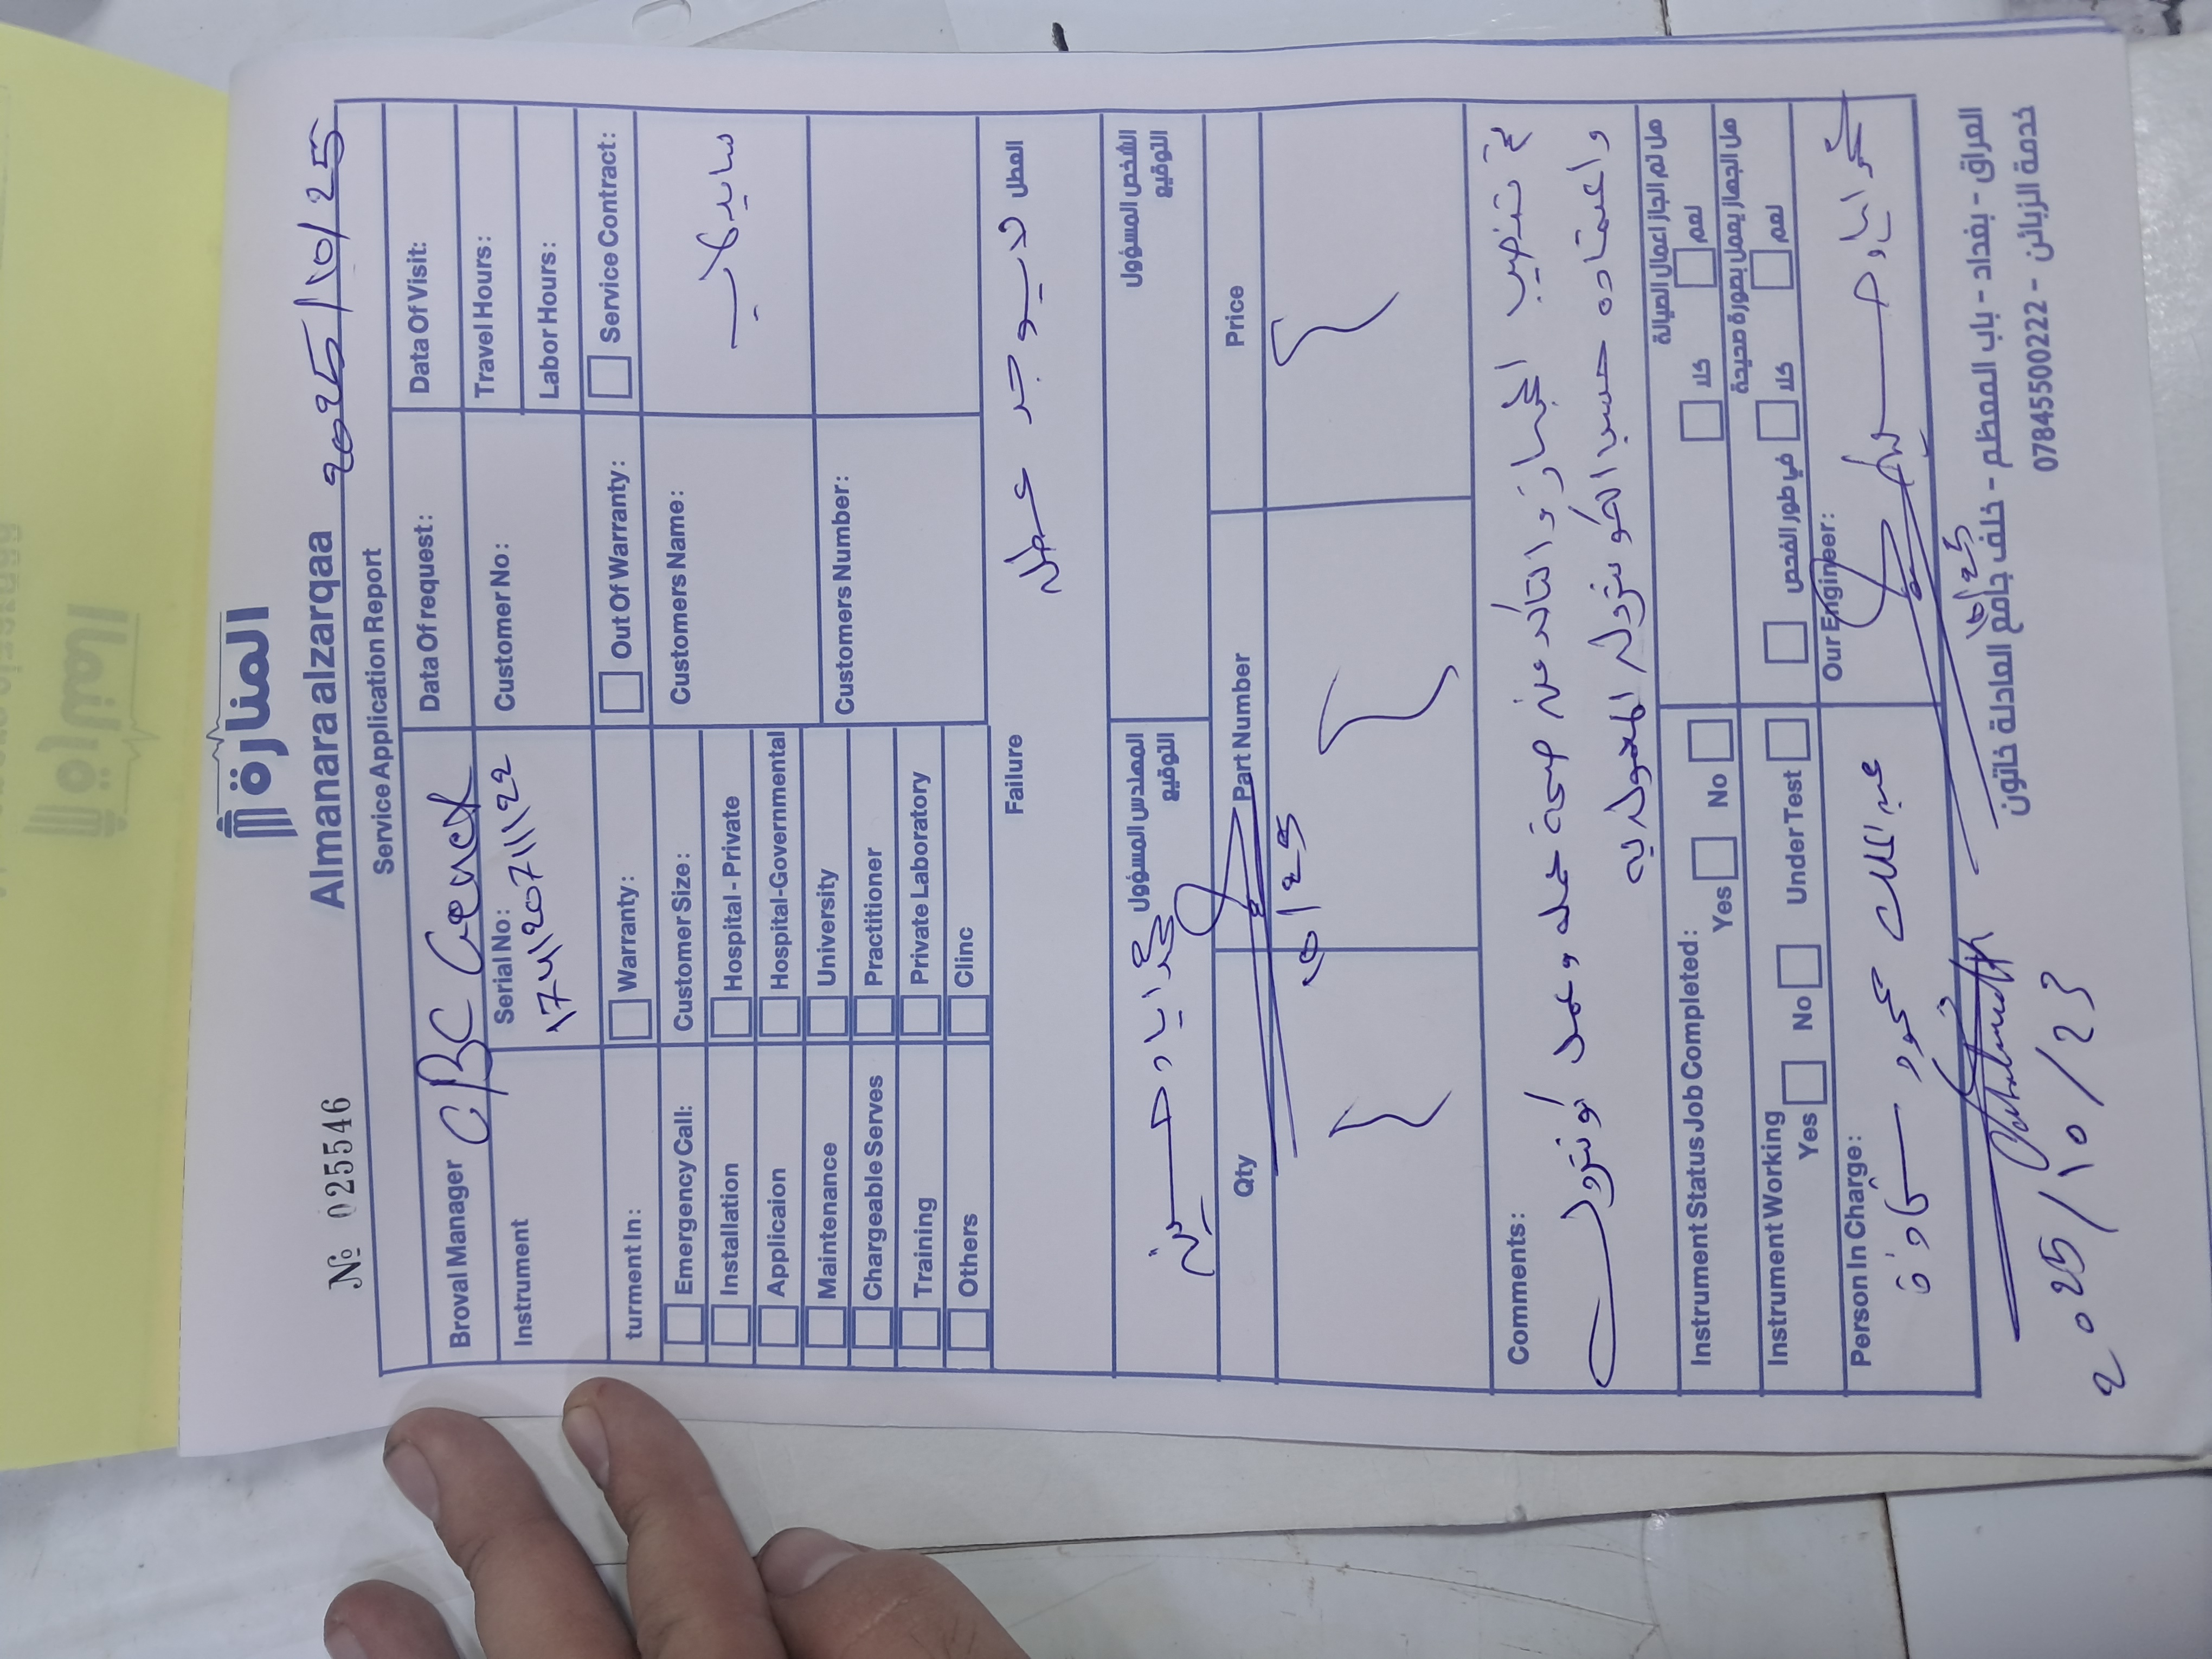 المنارة
Almanara alzarqaa
№ 025546
2025/10/25
Service Application Report
Broval Manager
CBC
Data Of request:
Data Of Visit:
Instrument
Serial No:
Customer No:
Travel Hours:
Labor Hours:
turment In:
Warranty:
Out Of Warranty:
Service Contract:
Emergency Call:
Customer Size:
Customers Name:
Installation
Hospital - Private
Applicaion
Hospital-Governmental
Maintenance
University
Customers Number:
Chargeable Serves
Practitioner
Training
Private Laboratory
Others
Clinc
Failure
العطل
لا يوجد عطل
المهندس المسؤول
التوقيع
الشخص المسؤول
التوقيع
Qty
Part Number
Price
Comments:
تم تنصيب الجهاز والتأكد من صحة عمله وعمل كونترول
واعتماده حسب الكونترول المعمول به
Instrument Status Job Completed:
Yes
No
هل تم انجاز اعمال الصيانة
نعم
كلا
Instrument Working
Yes
No
Under Test
هل الجهاز يعمل بصورة صحيحة
نعم
كلا
في طور الفحص
Person In Charge:
Our Engineer:
2025/10/23
العراق - بغداد - باب المعظم - خلف جامع العادلة خاتون
خدمة الزبائن - 07845500222